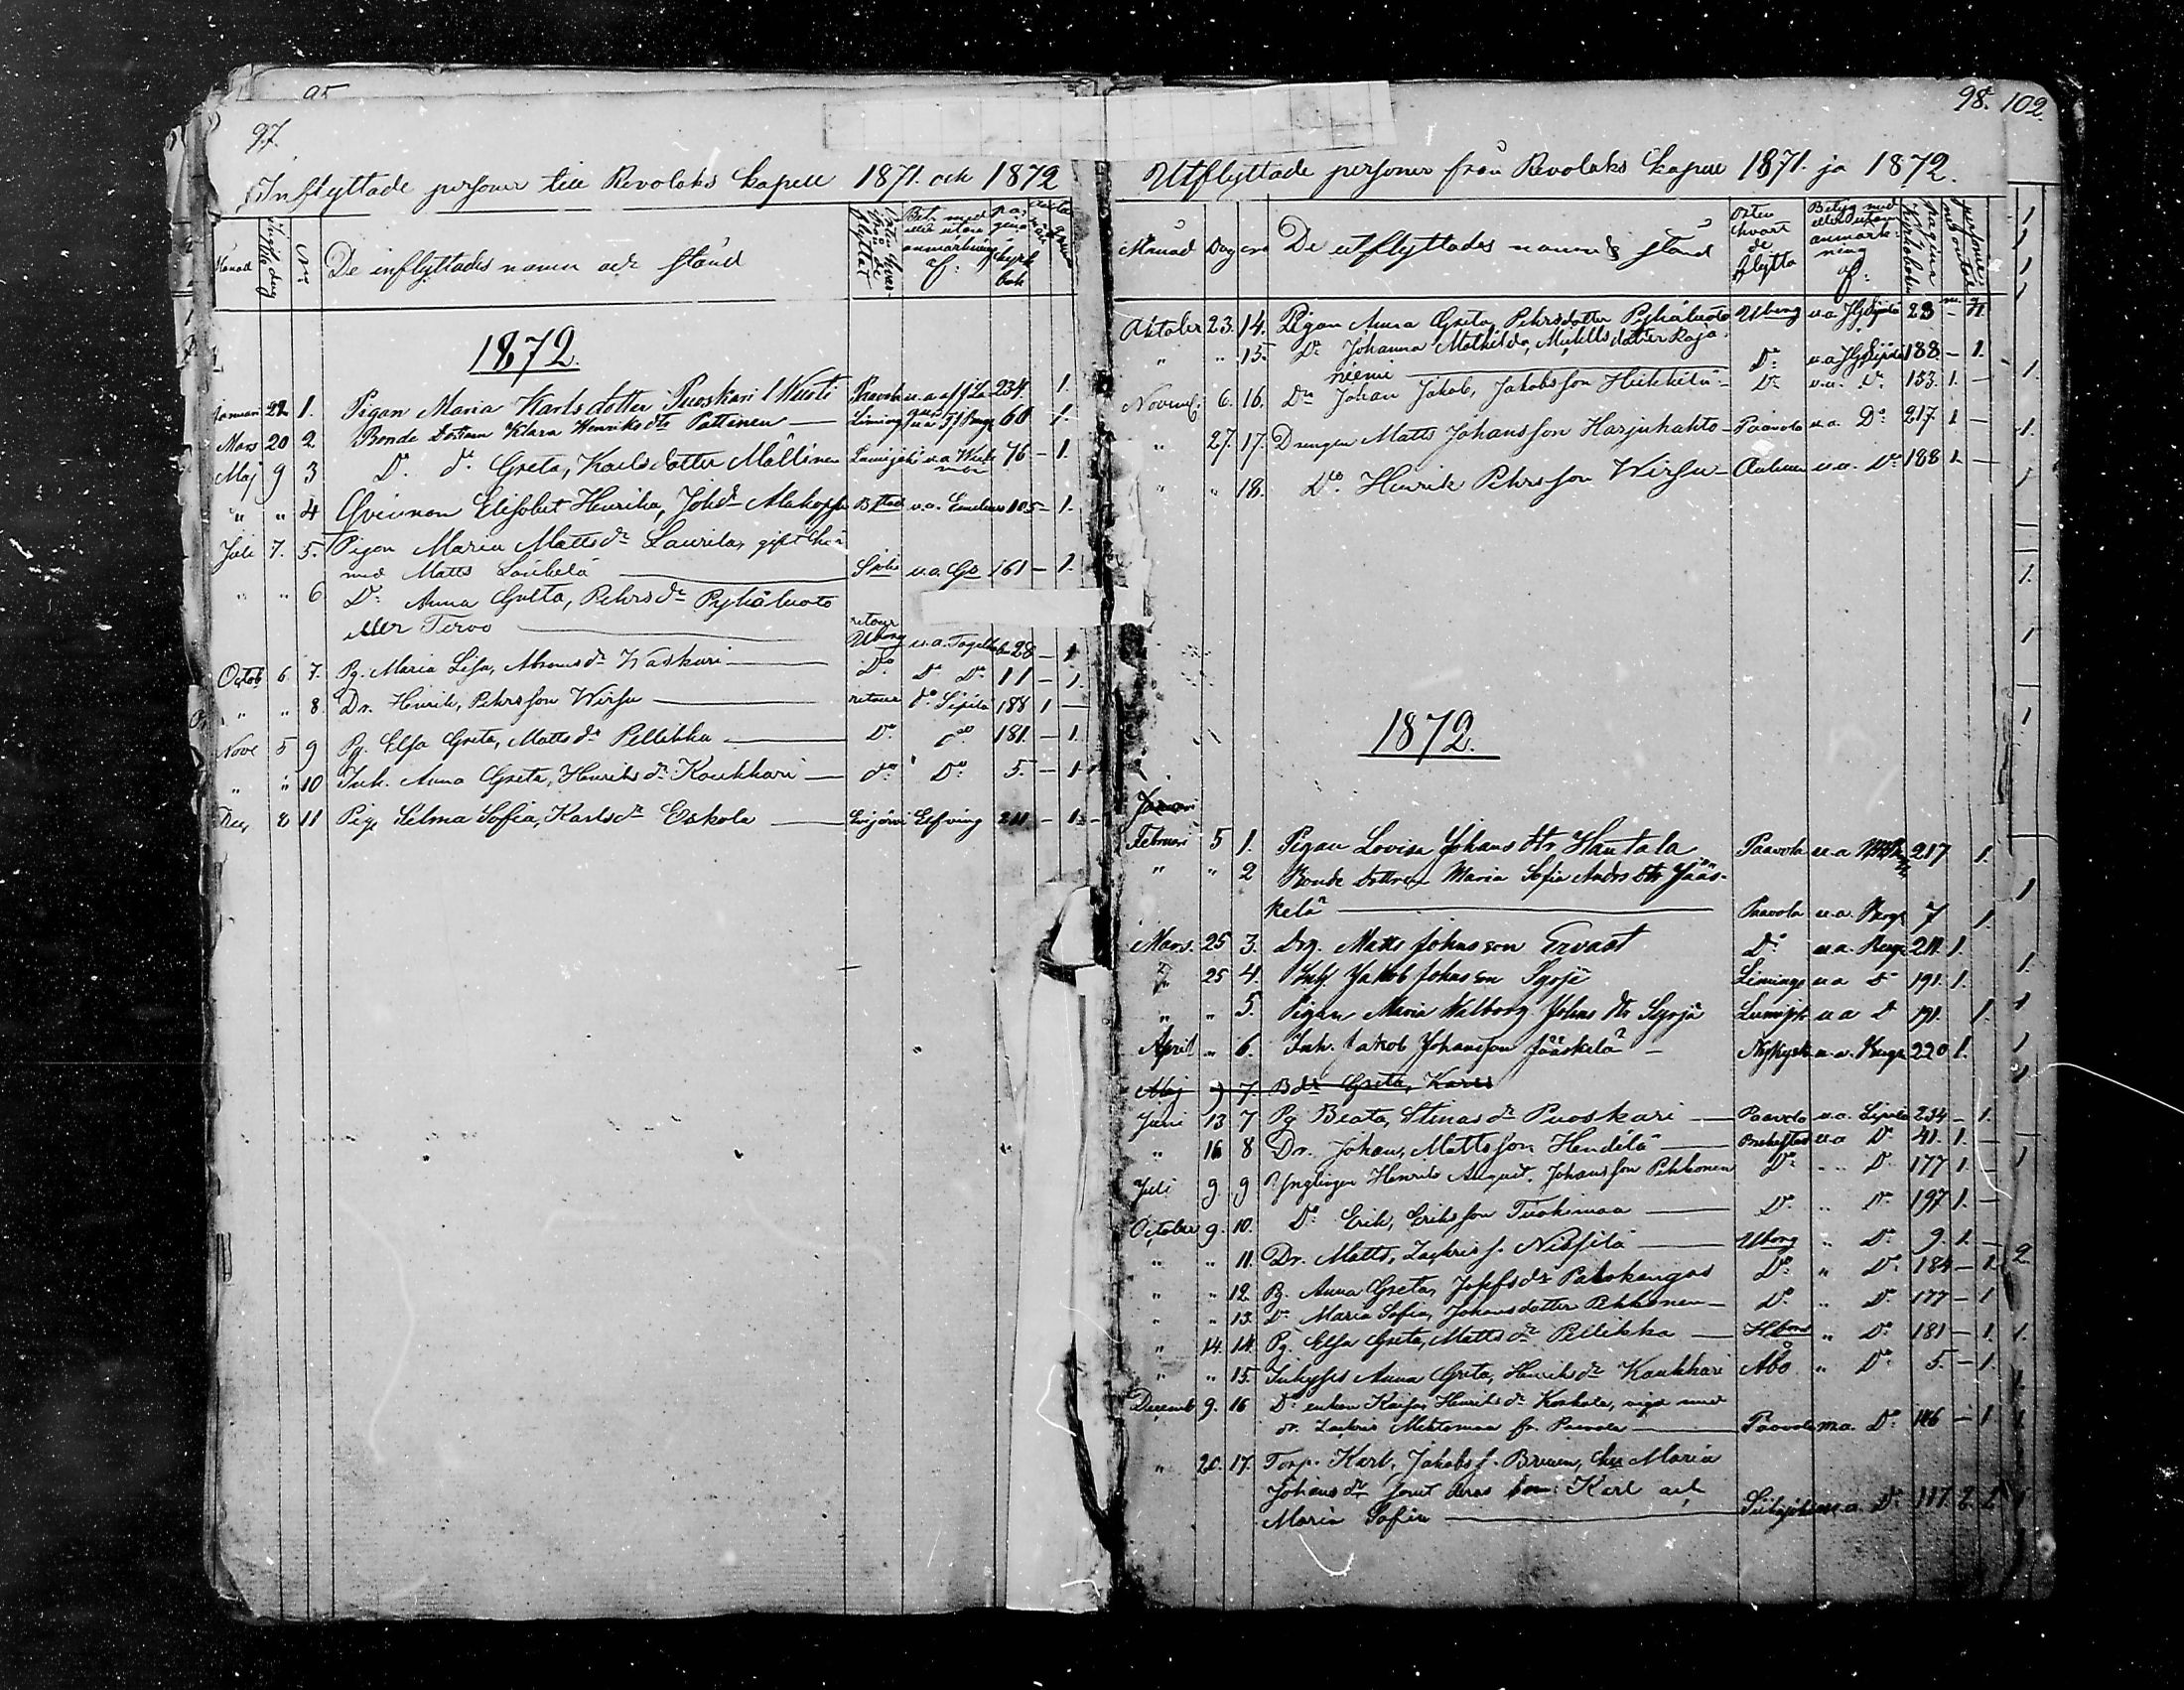 95
97.
Inflyttade personer till Revolaks kapell 1871. och 1872
Månad
N:o
De inflyttades namn och stånd
Bet. med eller utan anmärkning af:
pagina kyrk bok
1872.
Januari 22 1. Pigan Maria Karlsdotter Puoskari l. Wusti Paavola u.a. af 234. 1.
Mars 20 2 Bonde dottren Klara Henriksdtr Pattinen Liminga u.a. 60 1.
Maj 9 3 Do do Greta, Karlsdotter Mällinen Lumijoki u.a. 76 – 1.
" " 4 Qvinnan Elisabet Henrika, Johdr Alakopsa Bstad u.a. 105 – 1.
Juli 7. 5. Pigan Maria Mattsdr Laurila, gift här
med Matts Laukela Siikajo u.a. 161 – 1.
" " 6 Do Anna Greta, Pehrsdr Pyhäluoto
eller Tervo retour Uborg u.a. 28 – 1
Octob 6 7. Pg. Maria Lisa, Abramsdr Waskuri Do Do Do 11 – 1.
" " 8. Dr. Henrik, Pehrsson Wirsu retour do Sipilä 188 1 –
Nove 5 9 Pg. Elsa Greta, Mattsdr Pellikka Do do 181. – 1.
" " 10 Inh. Anna Greta, Henriksdr Koukkari do Do 5. – 1
Dec. 8 11 Pig. Selma Sofia, Karlsdr Eskola Evijärvi Elfving 211 – 1.
98. 102.
Utflyttade personer från Revolaks kapell 1871. ja 1872.
Månad Dag N:o De utflyttades namn & stånd
Orten hvart de flytta
Betyg med eller utan anmärkning af:
pagina i kyrkoboken
personernas antal
m. q.
Oktober 23. 14. Pigan Anna Greta, Pehrsdotter Pyhäluoto Uborg u.a. 28 – 1.
" " 15. Do Johanna Mathilda, Mickelsdotter Raja-
niemi Do u.a. 188 – 1.
Novemb. 6. 16. Dr Johan Jakob, Jakobsson Heikkilä Do u.a. Do 153. 1. –
" 27. 17. Drengen Matts Johansson Harjukahto Paavola u.a. Do 217. 1 –
" " 18. Do Henrik Pehrsson Wirsu u.a. Do 188 1. –
1872.
Januari
Februari 5 1. Pigan Lovisa Johansdtr Hantala Paavola u.a. 217 1.
" " 2 Bonde dottren Maria Sofia Andersdtr Jääs-
kelä Paavola u.a. Bergh 7 1.
Mars. 25 3. Drg. Matts Johnsson Ervast Do u.a. Bergh 211. 1.
25 4. Inh. Jakob Johnsson Syrjä Liminga u.a. Do 191. 1.
" " 5. Pigan Maria Walborg Johnsdtr Syrjä Lumijoki u.a. Do 191. 1.
April " 6. Inh. Jakob Johansson Jääskelä Nykyrk u.a. Bergh 220 1.
Maj 9 7. Bdr Greta, Karls
Juni 13 7 Pg Beata, Stinasdr Puoskari Paavola u.a. Sipilä 234 – 1.
" 16 8 Dr. Johan, Mattsson Hendilä Brahestad u.a. Do 41. 1. –
Juli 9 9 Ynglingen Henrik August, Johansson Pekkonen Do " Do 177 1. –
October 9. 10. Do Erik, Eriksson Tuohimaa Do " Do 197 1. –
" " 11. Dr. Matts, Zachris s. Nissilä Uborg " Do 9. 1. –
" " 12. Pg. Anna Greta, Josefsdr Palokangas Do " Do 184 – 1.
" " 13. Do Maria Sofia, Johansdotter Pekkonen Do " Do 177 – 1
" 14. 14. Pg. Elsa Greta, Mattsdr Pellikka " Do 181 – 1.
" " 15. Inhyses Anna Greta, Henriksdr Koukkari Åbo " Do 5. – 1.
Decemb 9. 16 Do enkan Kaisa, Henriksdr Koskela, vigd med
dr. Zachris Mehtomaa fr. Paavola Paavola m.a. Do 146 – 1
" 20. 17. Torp. Karl, Jakobs s. Bruun, hu Maria
Johansdr samt deras barn: Karl och
Maria Sofia Siikajoki u.a. Do 117. 2 2